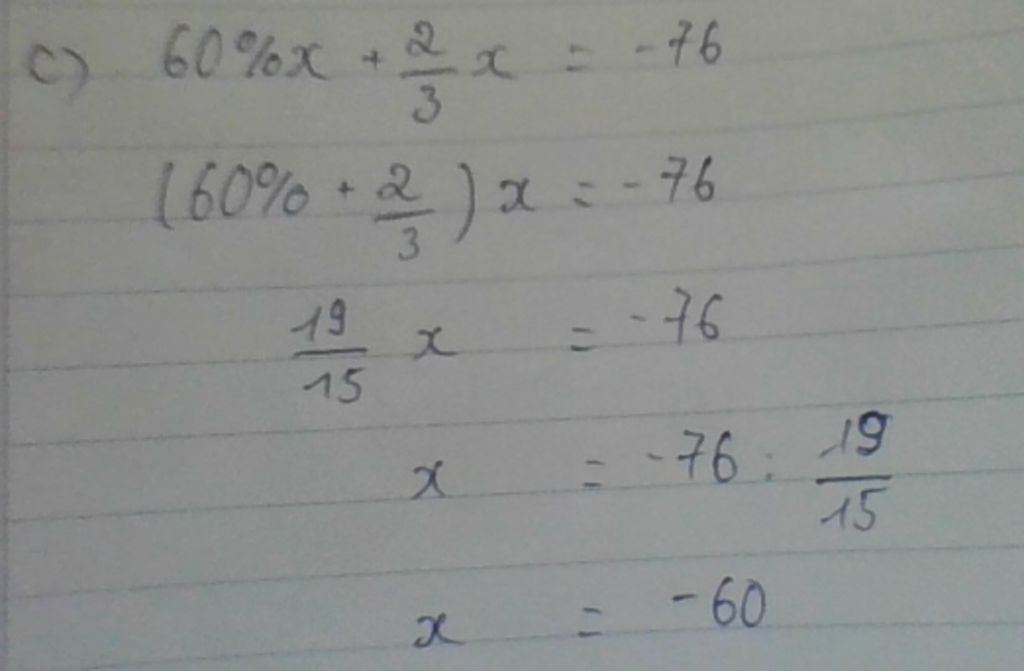 c) 60%x + 2/3 x = -76
(60% + 2/3) x = -76
19/15 x = -76
x = -76 : 19/15
x = -60